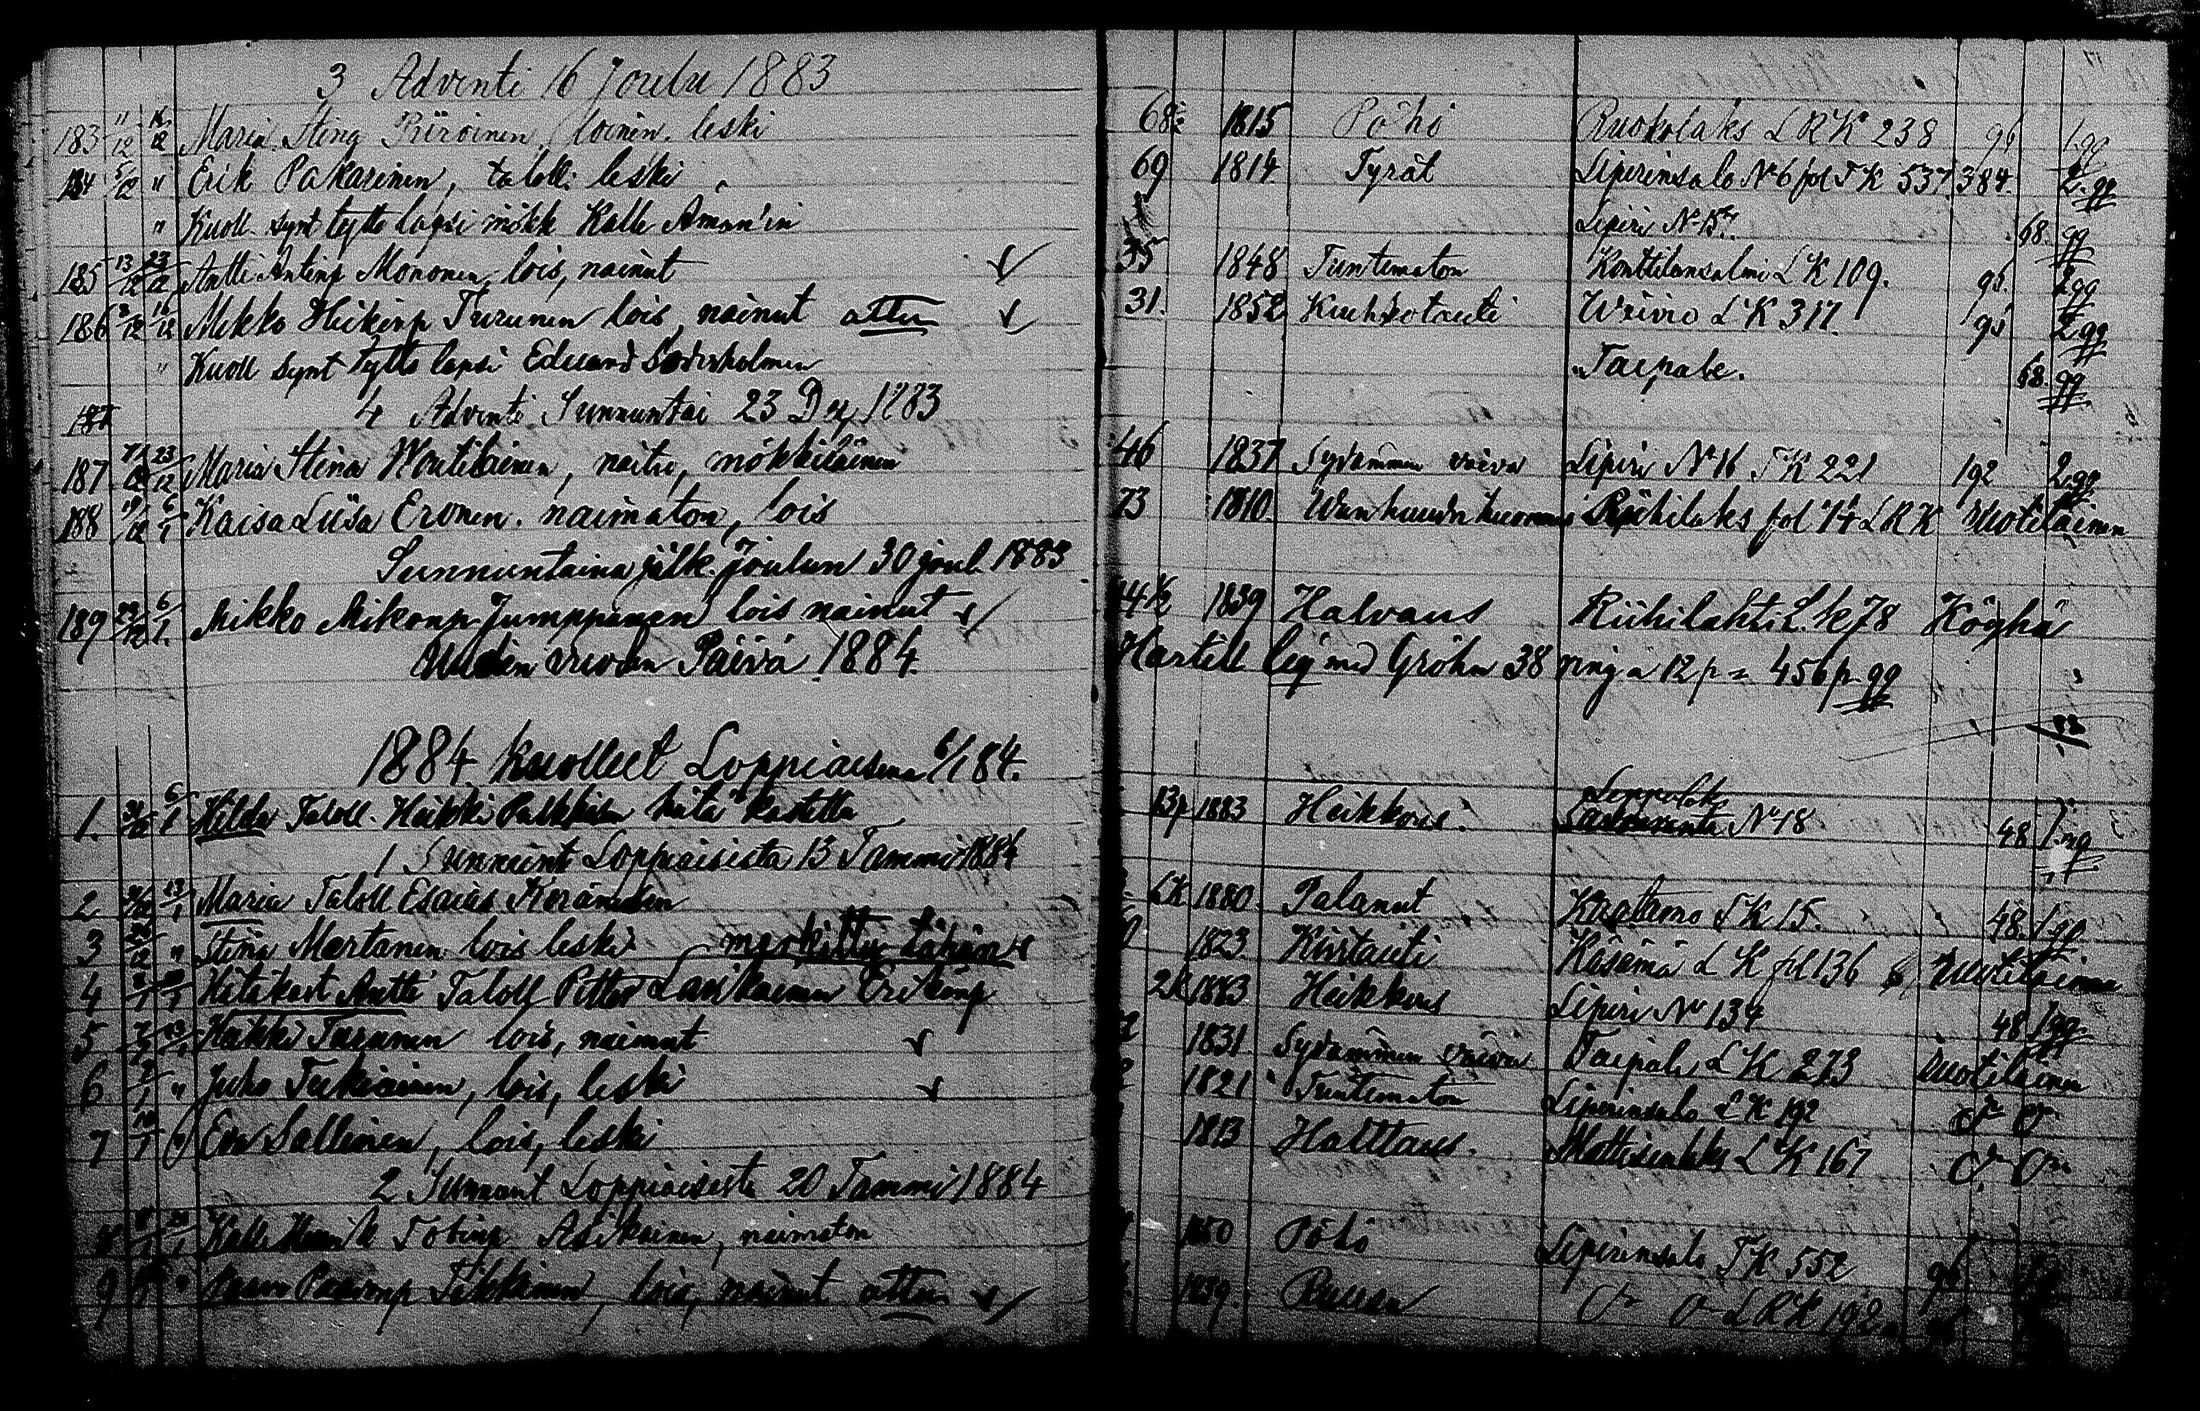 3 Adventi 16 Joulu 1883
183 11/12 16/12 Maria Stina Piiroinen, loinen. leski 68½ 1815 Pöhö Ruokolaks LRK 238 96 1.qq
184 5/12 " Erik Pakarinen, taloll. leski 69 1814 Tyrät Liperinsalo No 6 fol TK 537 384. 2.qq
" Kuoll. synt tyttö lapsi mökk Kalle Aman'in Liperi No 15 68. qq
185 13/12 23/12 Antti Antinp Mononen, lois, nainut 35 1848 Tuntematon Konttilansalmi LK 109. 96. 2qq
186 2/12 16/12 Mikko Heikinp Turunen lois, nainut otttu 31. 1852 Keuhkotauti Wiivio LK 317. 96 2qq
" Kuoll synt tyttö lapsi Eduard Söderholmin Taipale. 68. qq
187 4 Adventi Sunnuntai 23 Dec 1883
187 23/12 Maria Stina Woutilainen, naitu, mökkiläinen 46 1837 Sydämmen vaiva Liperi No 16 TK 221 192 2.qq
188 19/12 6/1 Kaisa Liisa Eronen. naimaton, lois 73 1810. Wanhuuden Riihilaks fol 74 LRK Wuotilainen
Sunnuntaina jälk. Joulun 30 joul. 1883
189 22/12 6/1. Mikko Mikonp Jumppanen lois nainut 44½ 1839 Halvaus Riihilahti L.k 78 Högha
Uuden vuoden Päivä 1884. Hartell lig med Gröhn 38 ring a 12 p = 456 p qq
1884 kuolleet Loppiaisena 6/1 84.
1. 6/1 Hilda Taloll. Heikki hätä kastettu 13p 1883 Heikkous. No 18 48 1.qq
1 Sunnunt Loppiaisista 13 Tammi 1884
2 13/1 Maria Taloll Esaias 1880 Palanut TK 15. 48. 1qq
3 " Stina Martanen lois leski merkitty tähän 1823. Kiiritauti Käsämä LK fol 136 Wuotilainen
4 Hätäkast Antti Taloll Petter Laukkanen Erikinp 2k 1883. Heikkous Liperi No 134 48 1qq.
5 13/1 Heikki Turunen lois, nainut 1831 Sydämmen vaiva Taipale LK 273 Wuotilainen
6 " Juho Tukiainen, lois, leski 1821 Tuntematon Liperinsalo LK 192
7 10/1 Eva Sallinen, lois, leski 1813 Halttaus. Mattisenlaks LK 167
2 Sunnunt Loppiaisesta 20 Tammi 1884
8 Kalle Henrik Tobinp Asikainen, naimaton 1850 Pöhö Liperinsalo TK 552 96
9 Paavonp Tikkinen, lois, nainut otttu 1839. LRK 192